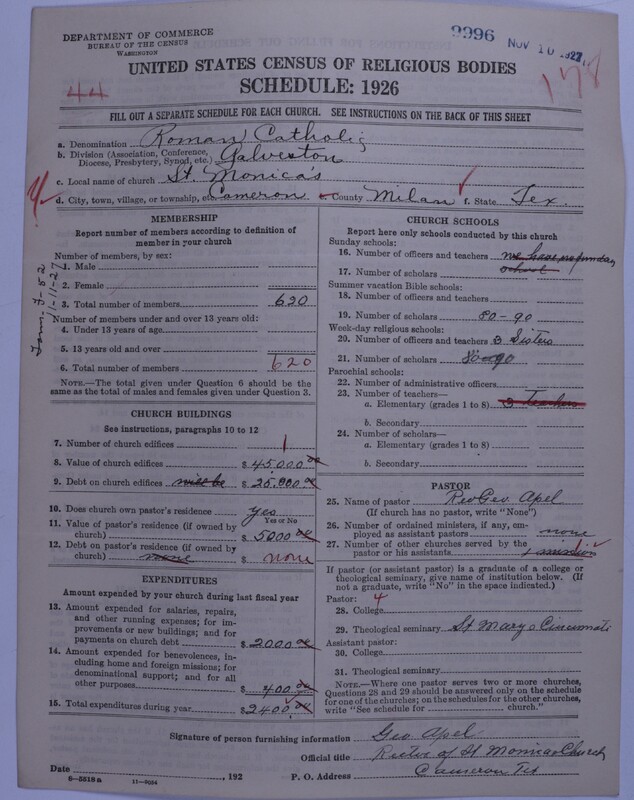 DEPARTMENT OF COMMERCE
BUREAU OF THE CENSUS
WASHINGTON
9996 NOV 10 1927
UNITED STATES CENSUS OF RELIGIOUS BODIES
SCHEDULE: 1926
44
178
FILL OUT A SEPARATE SCHEDULE FOR EACH CHURCH. SEE INSTRUCTIONS ON THE BACK OF THIS SHEET
a. Denomination Roman Catholic
b. Division (Association, Conference, Diocese, Presbytery, Synod, etc.) Galveston
c. Local name of church St. Monica's
d. City, town, village, or township, etc. Cameron e. County Milan f. State Tex.
MEMBERSHIP
Report number of members according to definition of member in your church
Number of members, by sex:
1. Male
2. Female
3. Total number of members 620
Number of members under and over 13 years old:
4. Under 13 years of age
5. 13 years old and over
6. Total number of members 620
NOTE.—The total given under Question 6 should be the same as the total of males and females given under Question 3.
11-11-27
CHURCH BUILDINGS
See instructions, paragraphs 10 to 12
7. Number of church edifices 1
8. Value of church edifices $ 45,000.00
9. Debt on church edifices will be $ 25,000.00
10. Does church own pastor's residence yes
Yes or No
11. Value of pastor's residence (if owned by church) $ 5000.00
12. Debt on pastor's residence (if owned by church) none $ none
EXPENDITURES
Amount expended by your church during last fiscal year
13. Amount expended for salaries, repairs, and other running expenses; for improvements or new buildings; and for payments on church debt $ 2000.00
14. Amount expended for benevolences, including home and foreign missions; for denominational support; and for all other purposes $ 400.00
15. Total expenditures during year $ 2400.00
CHURCH SCHOOLS
Report here only schools conducted by this church
Sunday schools:
16. Number of officers and teachers we have no sunday
17. Number of scholars school
Summer vacation Bible schools:
18. Number of officers and teachers
19. Number of scholars 80-90
Week-day religious schools:
20. Number of officers and teachers 3 Sisters
21. Number of scholars 80-90
Parochial schools:
22. Number of administrative officers
23. Number of teachers—
a. Elementary (grades 1 to 8) 3 Teachers
b. Secondary
24. Number of scholars—
a. Elementary (grades 1 to 8)
b. Secondary
PASTOR
25. Name of pastor Rev Geo Apel
(If church has no pastor, write "None")
26. Number of ordained ministers, if any, employed as assistant pastors none
27. Number of other churches served by the pastor or his assistants 1 mission
If pastor (or assistant pastor) is a graduate of a college or theological seminary, give name of institution below. (If not a graduate, write "No" in the space indicated.)
Pastor: 4
28. College
29. Theological seminary St Marys Cincinnati
Assistant pastor:
30. College
31. Theological seminary
NOTE.—Where one pastor serves two or more churches, Questions 28 and 29 should be answered only on the schedule for one of the churches; on the schedules for the other churches, write "See schedule for church."
Signature of person furnishing information Geo Apel
Official title Rector of St Monicas Church
Date , 192 P. O. Address Cameron Tex
8-5518a 11-9034